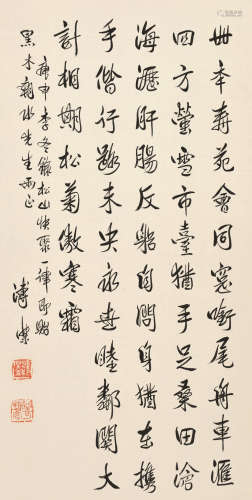 卅年壽苑會同窗銜尾舟車滙
四方螢雪市臺猶手足桑田滄
海瀝肝腸反躬自問身猶在攜
手偕行路未央永世睦鄰關大
計相期松菊傲寒霜
庚申季冬錄松山快聚一律即贈
黑木先生正
溥傑